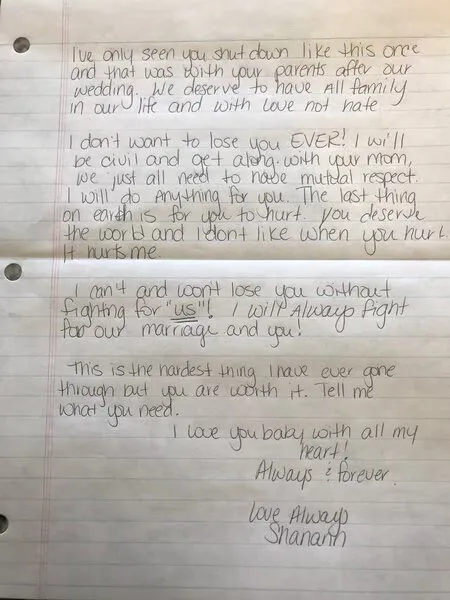 I've only seen you shut down like this once
and that was with your parents after our
wedding. We deserve to have All family
in our life and with love not hate
I don't want to lose you EVER! I will
be civil and get along with your mom,
we just all need to have mutual respect.
I will do Anything for you. The last thing
on earth is for you to hurt. You deserve
the world and I dont like when you hurt.
It hurts me.
I can't and wont lose you without
fighting for "us"! I will Always fight
for our marriage and you!
This is the hardest thing I have ever gone
through but you are worth it. Tell me
what you need.
I love you baby with all my
heart!
Always & forever.
Love Always
Shanann